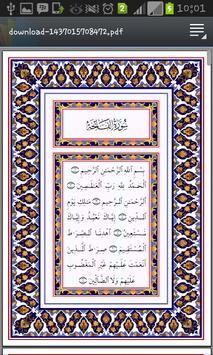 10:01
download-1437015708472.pdf
سُورَةُ الفَاتِحَةِ
بِسْمِ اللَّهِ الرَّحْمَٰنِ الرَّحِيمِ ۝
الْحَمْدُ لِلَّهِ رَبِّ الْعَٰلَمِينَ ۝
الرَّحْمَٰنِ الرَّحِيمِ ۝ مَٰلِكِ يَوْمِ
الدِّينِ ۝ إِيَّاكَ نَعْبُدُ وَإِيَّاكَ
نَسْتَعِينُ ۝ اهْدِنَا الصِّرَٰطَ
الْمُسْتَقِيمَ ۝ صِرَٰطَ الَّذِينَ
أَنْعَمْتَ عَلَيْهِمْ غَيْرِ الْمَغْضُوبِ
عَلَيْهِمْ وَلَا الضَّالِّينَ ۝